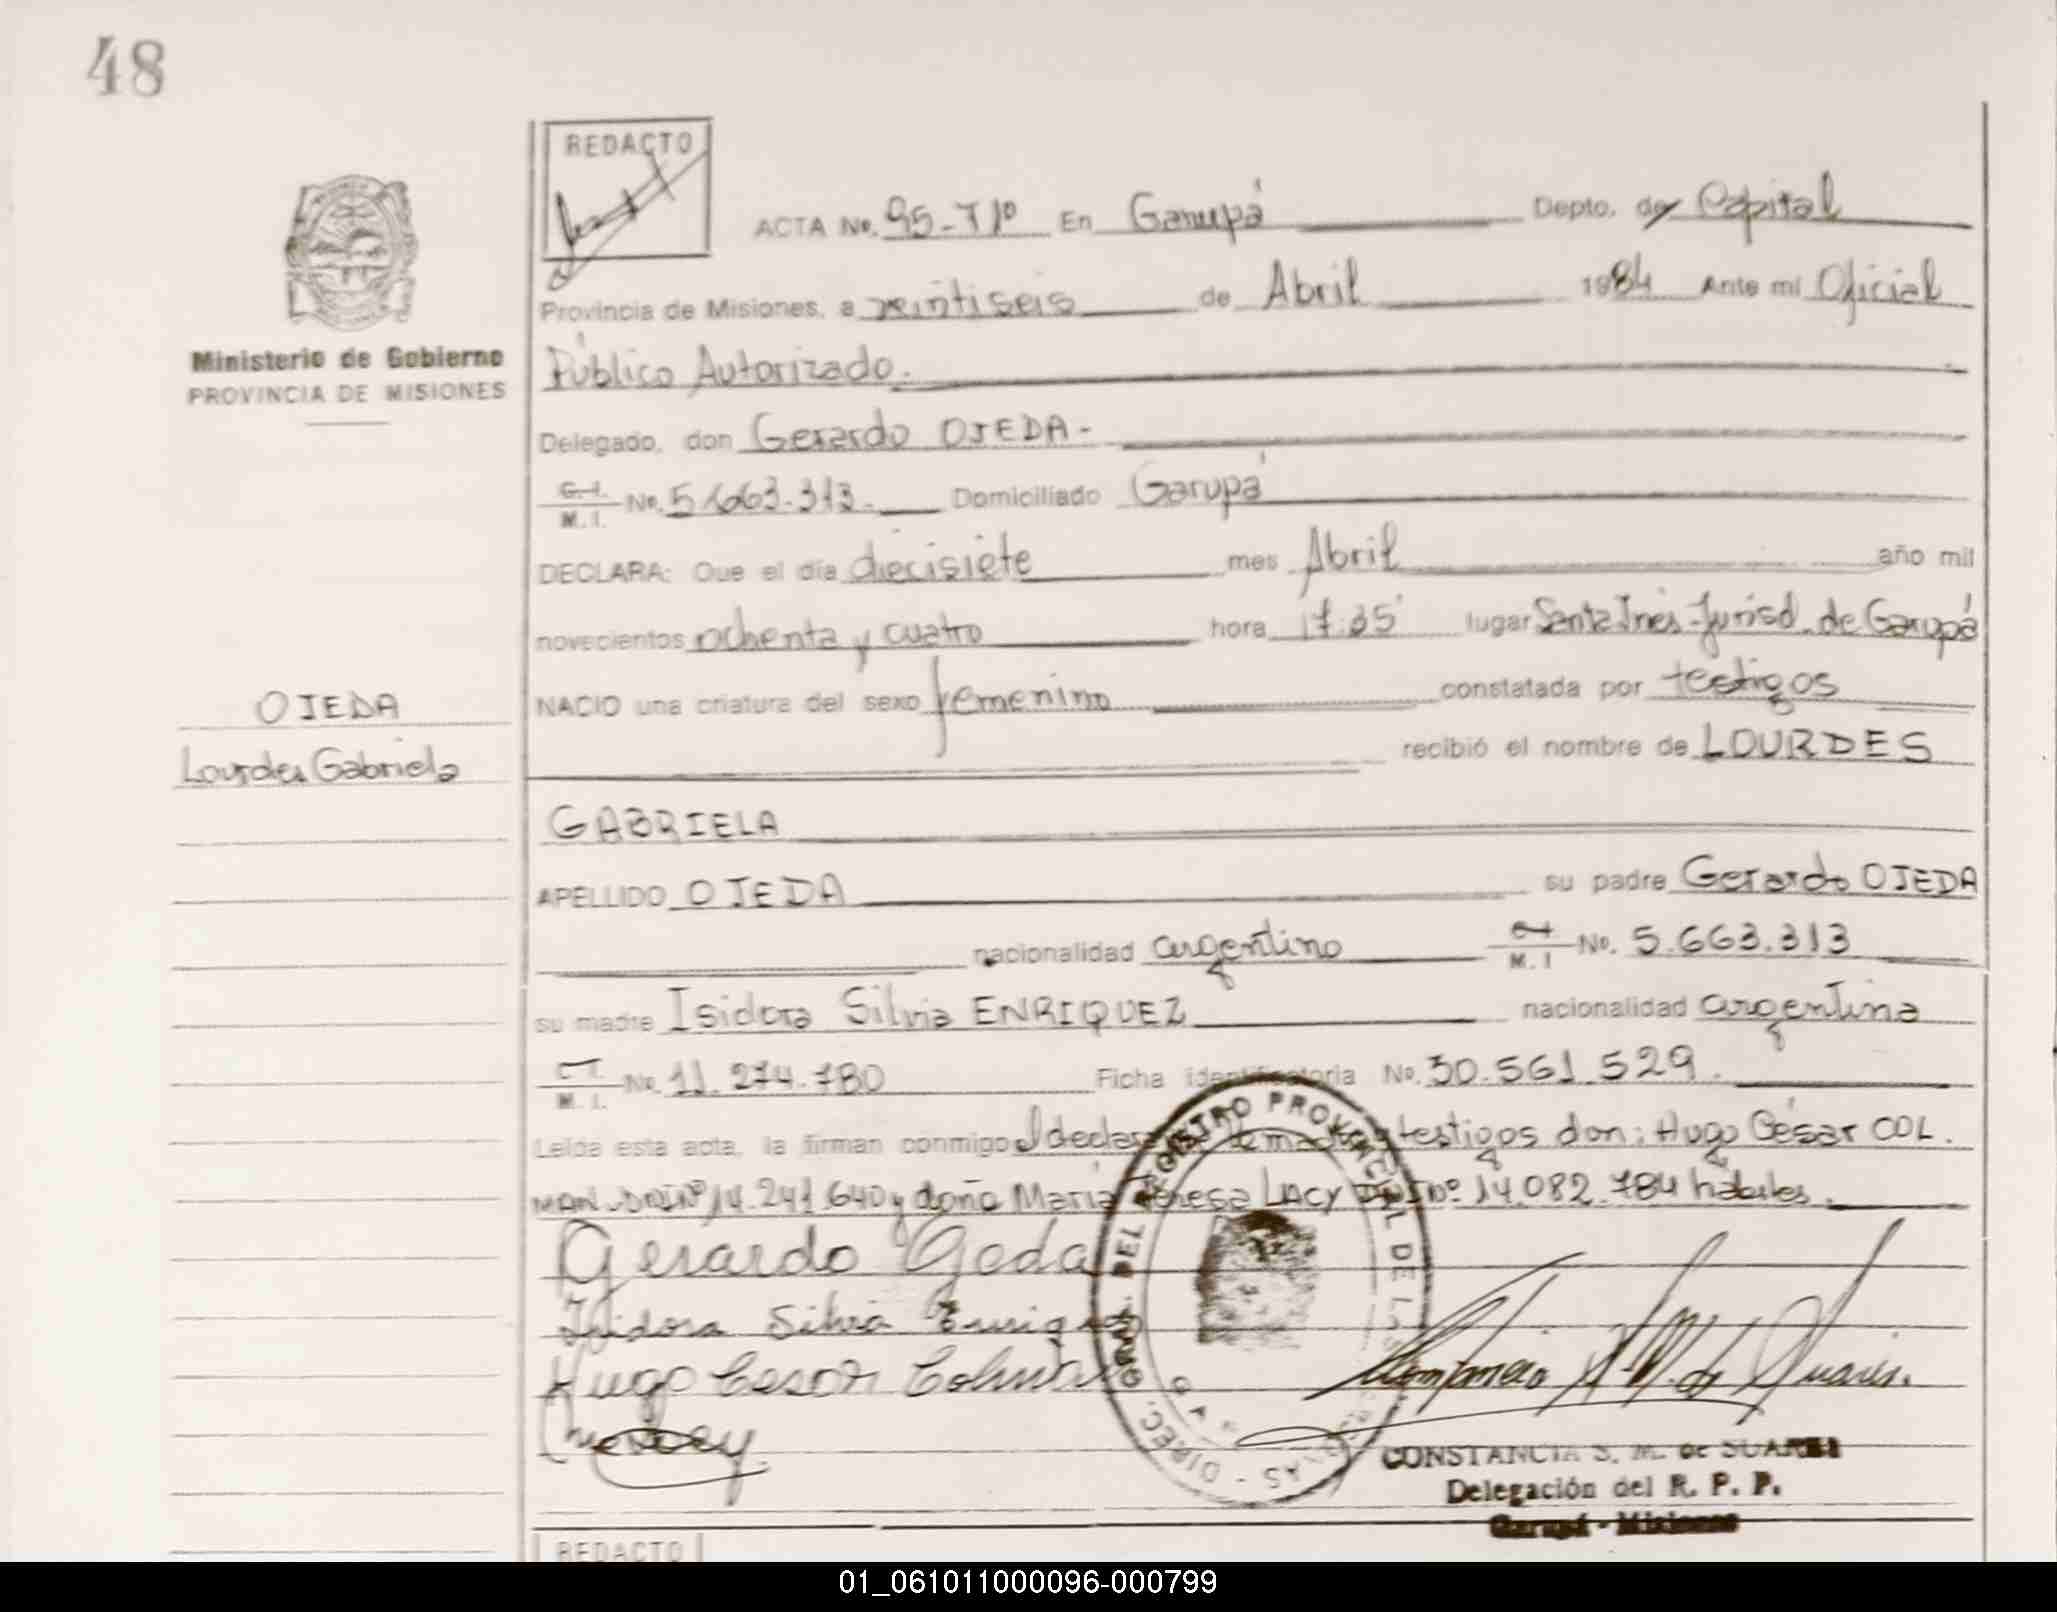 48
REDACTO
ACTA No. 95-Tº En Garupá Depto. de Capital
Provincia de Misiones, a veintiseis de Abril 1984 Ante mí Oficial
Ministerio de Gobierno
PROVINCIA DE MISIONES
Público Autorizado.
Delegado, don Gerardo OJEDA-
C.I.
M.I. No. 5.663.313. Domiciliado Garupá
DECLARA: Que el día diecisiete mes Abril año mil
novecientos ochenta y cuatro hora lugar Santa Inés-Jurisd. de Garupá
NACIO una criatura del sexo femenino constatada por testigos
OJEDA
Lourdes Gabriela
recibió el nombre de LOURDES
GABRIELA
APELLIDO OJEDA su padre Gerardo OJEDA
nacionalidad argentino C.I.
M.I No. 5.663.313
su madre Isidora Silvia ENRIQUEZ nacionalidad argentina
C.I.
M.I. No. 11.274.780 Ficha identificatoria No. 30.561.529.
Leída esta acta, la firman conmigo madre y testigos don: Hugo César COL.
MAN-DNINº 14.241.640 y doña María Teresa LACY DNINº 14.082.784 hábiles.
Gerardo Ojeda
Isidora Silvia Enriquez
Hugo Cesar Colman
DIREC. GRAL. DEL REGISTRO PROVINCIAL DE LAS PERSONAS
CONSTANCIA S. M. de SUAREZ
Delegación del R. P. P.
Garupá - Misiones
REDACTO
01_061011000096-000799